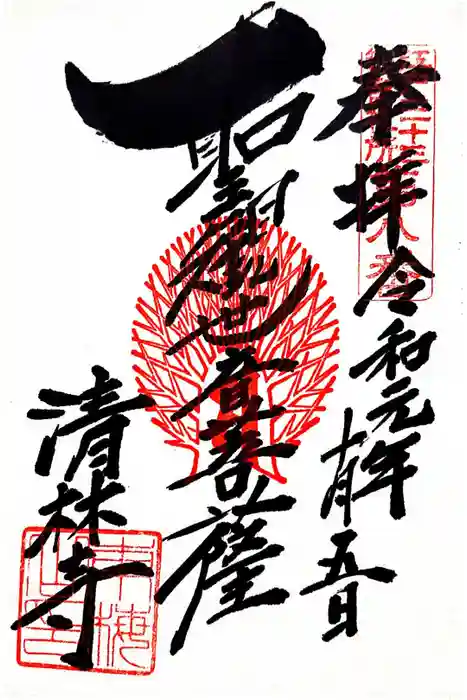 奉拝 令和元年十月五日
聖観世音菩薩
清林寺